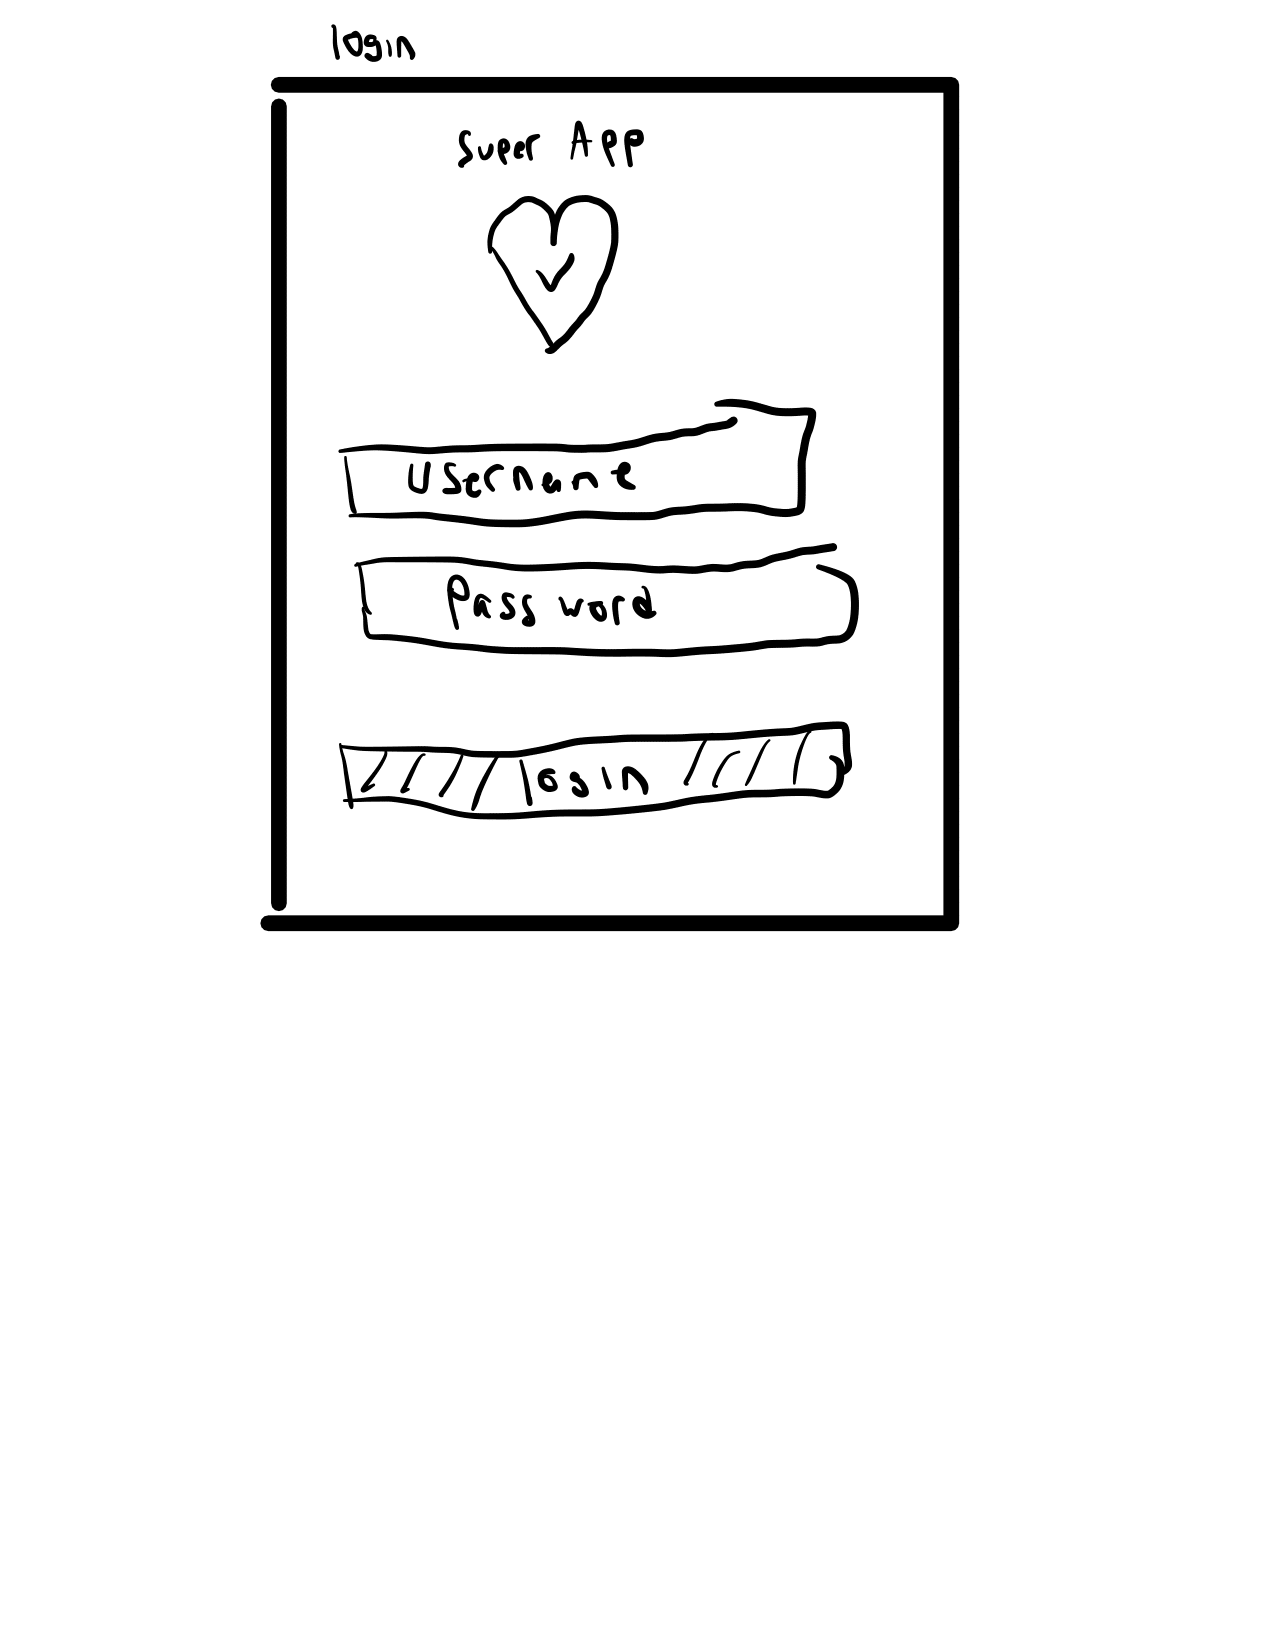 login
Super App
Username
Password
login